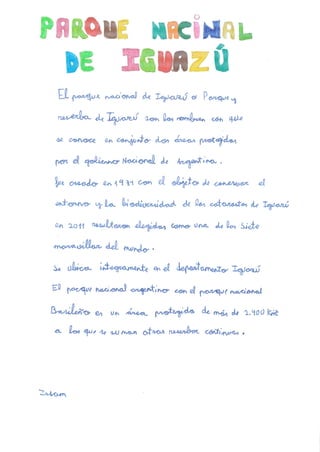 PARQUE NACINAL
DE IGUAZÚ
El parque nacional de Iguazú o Parque y
reserba de Iguazú son los nombres con que
se conoce en conjunto dos áreas protegidas
por el gobierno Nacional de Argentina.
fue creado en 1934 con el objeto de conservar el
entorno y la biodiversidad de las cataratas de Iguazú
en 2011 resultaron elegidas como una de las Siete
maravillas del mundo.
Se ubica integramente en el departamento Iguazú
El parque nacional argentino con el parque nacional
Brasileño es un área protegida de más de 2.400 km²
a las que se suman otras reserbas continuas.